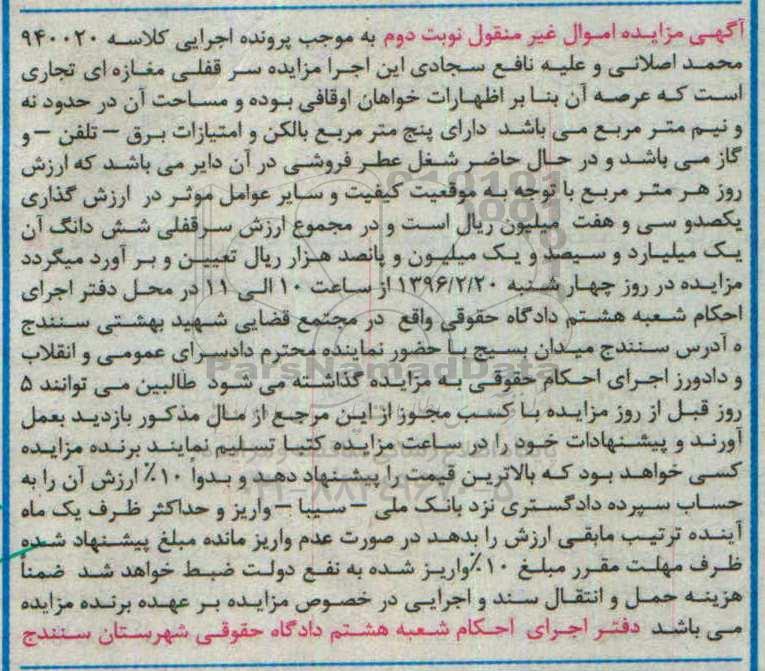 آگهی مزایده اموال غیر منقول نوبت دوم به موجب پرونده اجرایی کلاسه ۹۴۰۰۲۰
محمد اصلانی و علیه نافع سجادی این اجرا مزایده سر قفلی مغازه ای تجاری
است که عرصه آن بنا بر اظهارات خواهان اوقافی بوده و مساحت آن در حدود نه
و نیم متر مربع می باشد دارای پنج متر مربع بالکن و امتیازات برق – تلفن – و
گاز می باشد و در حال حاضر شغل عطر فروشی در آن دایر می باشد که ارزش
روز هر متر مربع با توجه به موقعیت کیفیت و سایر عوامل موثر در ارزش گذاری
یکصدو سی و هفت میلیون ریال است و در مجموع ارزش سرقفلی شش دانگ آن
یک میلیارد و سیصد و یک میلیون و پانصد هزار ریال تعیین و بر آورد میگردد
مزایده در روز چهار شنبه ۱۳۹۶/۲/۲۰ از ساعت ۱۰ الی ۱۱ در محل دفتر اجرای
احکام شعبه هشتم دادگاه حقوقی واقع در مجتمع قضایی شهید بهشتی سنندج
ه آدرس سنندج میدان بسیج با حضور نماینده محترم دادسرای عمومی و انقلاب
و دادورز اجرای احکام حقوقی به مزایده گذاشته می شود طالبین می توانند ۵
روز قبل از روز مزایده با کسب مجوز از این مرجع از مال مذکور بازدید بعمل
آورند و پیشنهادات خود را در ساعت مزایده کتبا تسلیم نمایند برنده مزایده
کسی خواهد بود که بالاترین قیمت را پیشنهاد دهد و بدواً ۱۰٪ ارزش آن را به
حساب سپرده دادگستری نزد بانک ملی – سیبا – واریز و حداکثر ظرف یک ماه
آینده ترتیب مابقی ارزش را بدهد در صورت عدم واریز مانده مبلغ پیشنهاد شده
ظرف مهلت مقرر مبلغ ۱۰٪واریز شده به نفع دولت ضبط خواهد شد ضمناً
هزینه حمل و انتقال سند و اجرایی در خصوص مزایده بر عهده برنده مزایده
می باشد دفتر اجرای احکام شعبه هشتم دادگاه حقوقی شهرستان سنندج
ParsNamadData